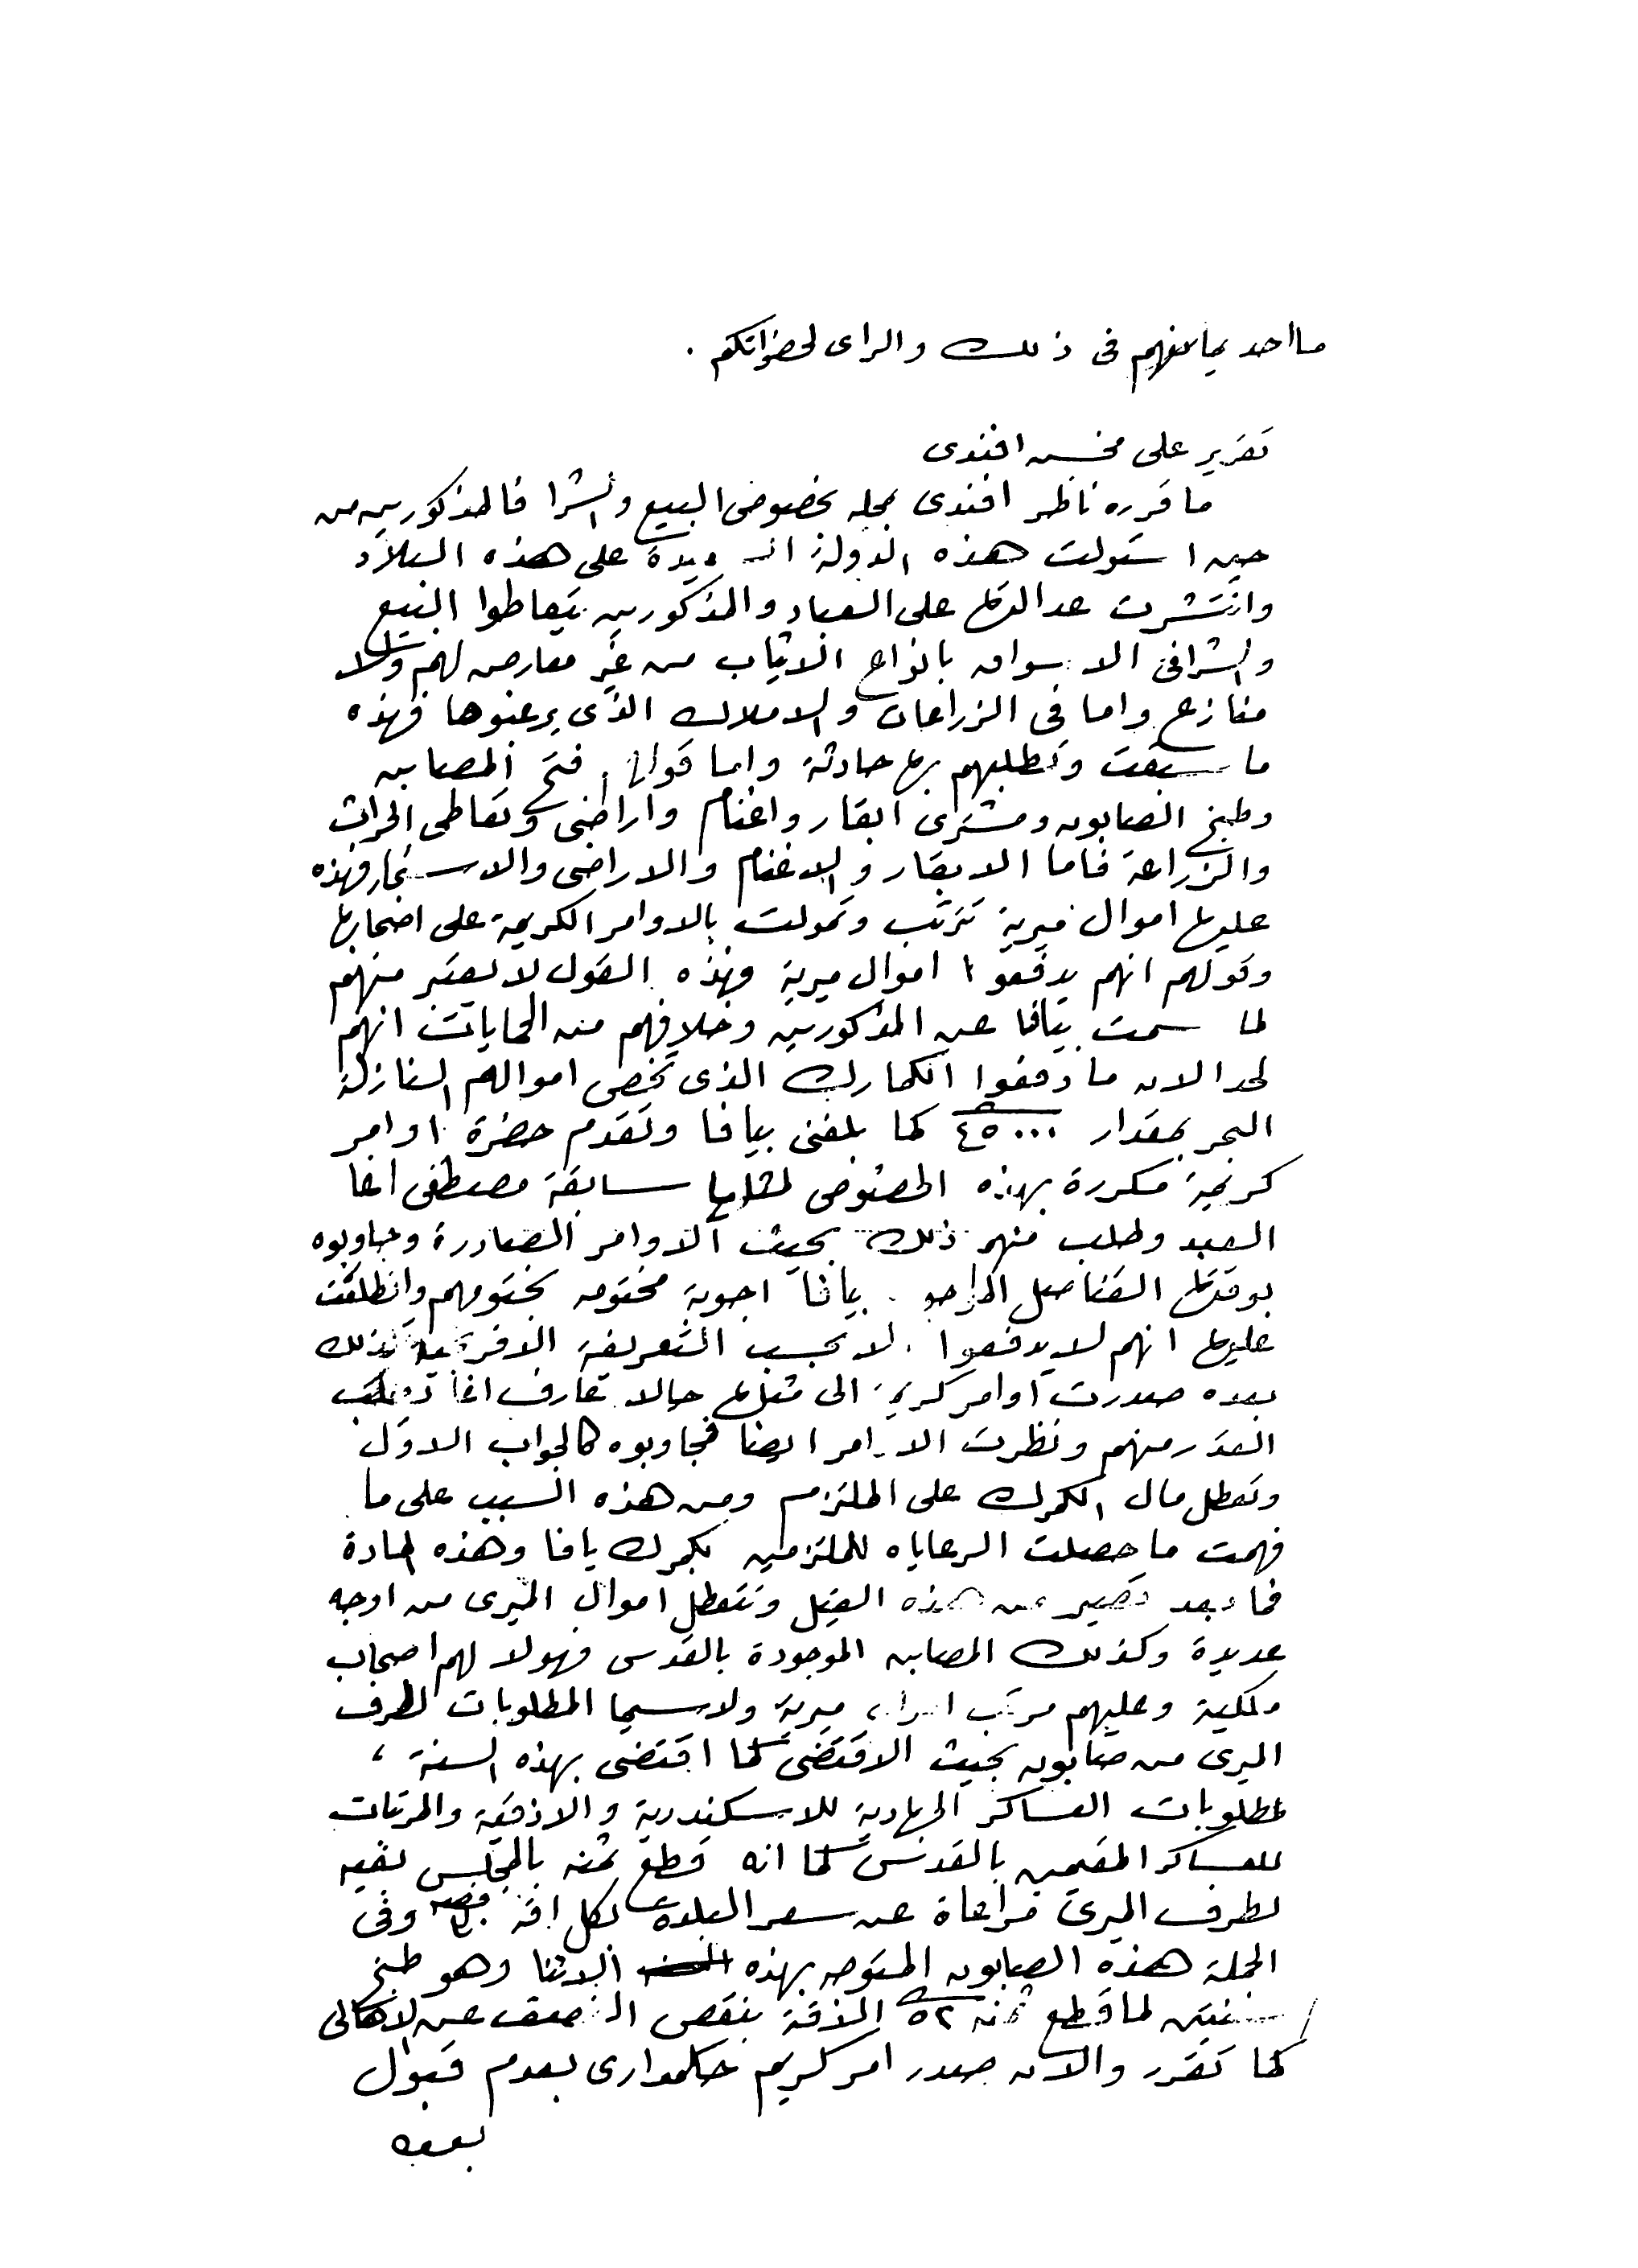 ما احد يمانعهم فى ذلك والراى لحضراتكم .
تقرير على محسن افندى
ما قرره ناظر افندى بمحله بخصوص البيع والشرا فالمذكورين من
حين استولت هذه الدولة على هذه البلاد
وانتشرت عدالتها على العباد والمذكورين يتعاطوا البيع
والشرا فى الاسواق بانواع الاثياب من غير معارض لهم ولا
منازع واما فى الزراعات والاملاك الذى يرغبوها فهذه
ما سبقت وتطلبهم بها حادثة واما قولهم فتح المصابن
وطبخ الصابون ومشترى ابقار واغنام واراضى وتعاطى الحراث
والزراعة فاما الابقار والاغنام والاراضى والاشجار فهذه
عليها اموال ميرية ترتب وتمولت بالاوامر الكريمة على اصحابها
وقولهم انهم يدفعوا اموال ميرية فهذه القول لا يعتبر منهم
لما سمعت بيافا عن المذكورين وخلافهم من الحمايات انهم
لحد الان ما دفعوا الكمارك الذى تخص اموالهم النازلة
البحر بمقدار ٤٥٠٠٠ كما بلغنى بيافا وتقدم حضرة اوامر
كريمة مكررة بهذه الخصوص سابقة مصطفى اغا
السعيد وطلب منهم ذلك بحيث الاوامر الصادرة وجاوبوه
بوقتها القناصل بيافا اجوبة مختومه بختومهم وانطلقت
عليها انهم لا يدفعوا الا بحسب التعريفة الافرنجية كذلك
بعده صدرت اوامر كريمة الى حالا عارف اغا
القدر منهم ونظرت الاوامر ايضا فجاوبوه كالجواب الاول
وتعطل مال الكمرك على الملتزم ومن هذه السبب على ما
فهمت ما حصلت الرعاياه للملتزمين بكمرك يافا وهذه المادة
فما بعد تصير من هذه القبيل وتتعطل اموال الميرى من اوجه
عديدة وكذلك المصابن الموجودة بالقدس فهولا لهم اصحاب
ملكية وعليهم مرتب اموال ميرية ولا سيما المطلوبات لطرف
الميرى من صابون بحيث الاقتضى كما اقتضى بهذه السنة ،
مطلوبات العساكر الجهادية للاسكندرية والاذقية والمرتبات
للعساكر المقيمين بالقدس كما انه قطع ثمنه بالمجلس
لطرف الميرى مراعاة عن سعر البلدة لكل اقة وفى
الجملة هذه الصابون المتوجه بهذه الاثنا وهو طبخ
سنتين لما قطع ثمنه ٥٢ الاقة بنقص النصف عن الاهالى
كما تقرر والان صدر امر كريم حكمدارى بعدم قبول